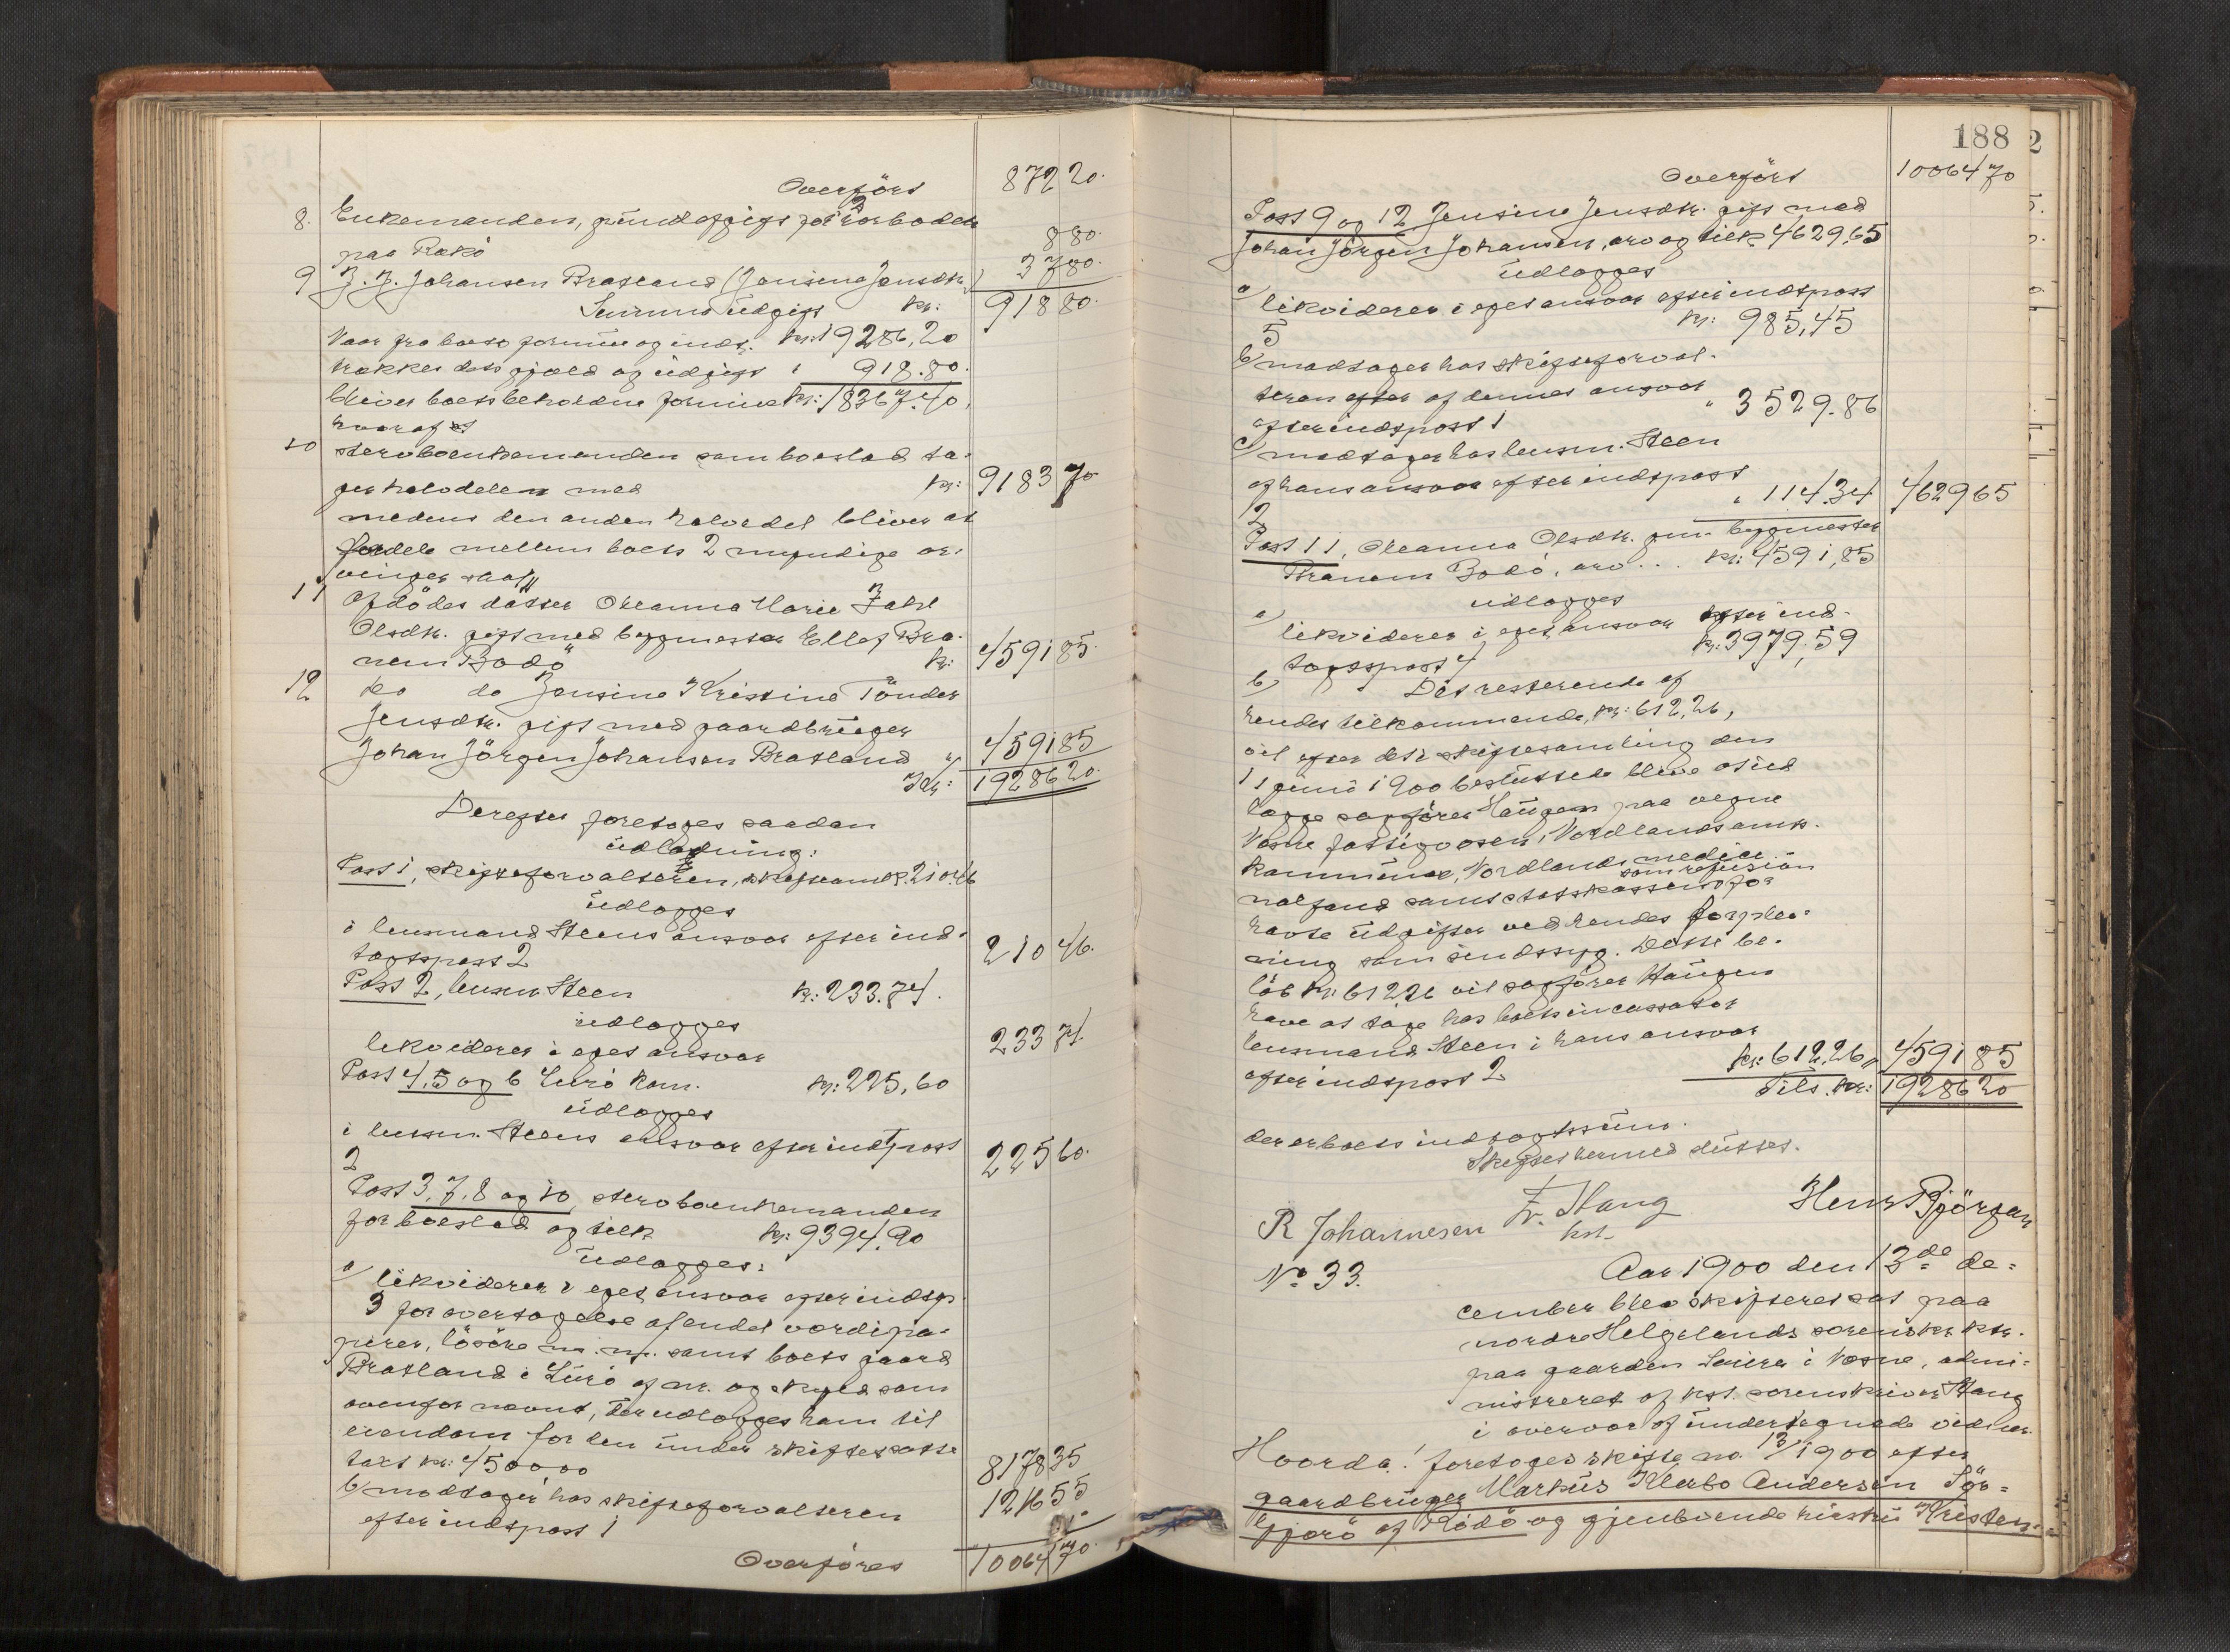 Overført 872 20.
8. Enkemanden, grundafgift for rorboden
paa Rakö 8 80.
9 J. J. Johansen Bratland (Jensine Jensdtr.) 37 80.
Summa udgift kr: 918 80.
Naar fra boets formue og indt. kr: 19286,20
trækkes dets gjæld og udgift " 918.80.
bliver boets beholdne formue kr: 18367.40,
hvoraf
10 sterboenkemanden som boeslod ta-
ger halvdelen med kr: 9183 70
medens den anden halvdel bliver at
fordele mellem boets 2 myndige ar-
vinger saa
11 afdödes datter Oleanna Marie Zahl
Olsdtr. gift med bygmester Ellef Bra-
nem Bodö kr: 4591 85.
12 do do Jensine Kristine Tönder
Jensdtr. gift med gaardbruger
Johan Jörgen Johansen Bratland " 4591 85
Ialt: 19286 20.
Derefter foretoges saadan
udlodning:
Post 1, skifteforvalteren, skifteomk. 210.46
udlægges
i lensmand Steens ansvar efter ind-
tægtspost 2 210 46.
Post 2, lensm. Steen kr: 233.74.
udlægges
likviderer i eget ansvar 233 74
Post 4, 5 og 6 Lurö kom. kr: 225,60
udlægges
i lensm. Steens ansvar efter indtpost
2 225 60.
Post 3, 7, 8 og 10, sterboenkemanden
for boeslod og tilk. kr: 9394.90
udlægges:
a/ likviderer i eget ansvar efter indtp.
3 for overtagelse af endel værdipa-
pirer, lösöre m. m. samt boets gaard
Bratland i Lurö af nr. og skyld som
ovenfor nævnt, der udlægges ham til
eiendom for den under skiftet satte
taxt kr: 4500,00 8178 35
b/ modtager hos skifteforvalteren
efter indtpost 1 1216 55
Overføres 10064 70.
188
Overført 10064 70
Post 9 og 12 Jensine Jensdtr. gift med
Johan Jörgen Johansen, arv og tilk. 4629,65
udlægges
a/ likviderer i eget ansvar efter indtpost
5 kr: 985,45
b/ modtager hos skifteforval-
teren af dennes ansvar
efter indtpost 1 " 3529.86
c/ modtager hos lensm. Steen
af hans ansvar efter indtpost
2 " 114.34 4629 65
Post 11, Oleanna Olsdtr. g.m. bygmester
Branem Bodö, arv... kr: 4591,85
udlægges
a/ likviderer i eget ansvar efter ind-
tægtspost 4 kr: 3979,59
b/ Det resterende af
hendes tilkommende, kr: 612,26,
vil efter det i skiftesamling den
11 juni 1900 besluttede blive at ud-
lægge sagförer Haugen paa vegne
Næsne fattigvæsen, Nordlands amts-
kommune, Nordlands medici-
nalfond samt statskassen som refusion for
havte udgifter ved hendes forplei-
ning som sindssyg. Dette be-
löb kr: 612,26 vil sagförer Haugen
have at tage hos boets incassator
lensmand Steen i hans ansvar
efter indtpost 2 kr: 612.26 4591 85
Tils. kr: 19286 20
der er boets indtægtssum.
Skiftet hermed sluttet.
R Johannesen Fr. Stang Henr Bjørgan
kst.
No 33. Aar 1900 den 13de de-
cember blev skifteret sat paa
nordre Helgelands sorenskr. ktr.
paa gaarden i Næsne, admi-
nistreret af kst. sorenskriver Stang
i overvær af undertegnede vidner.
Hvorda! foretoges skifte no. 13/1900 efter
gaardbruger Markus Klerbo Andersen Sör-
gjerö af Rödö og gjenlevende hustru Kristen-